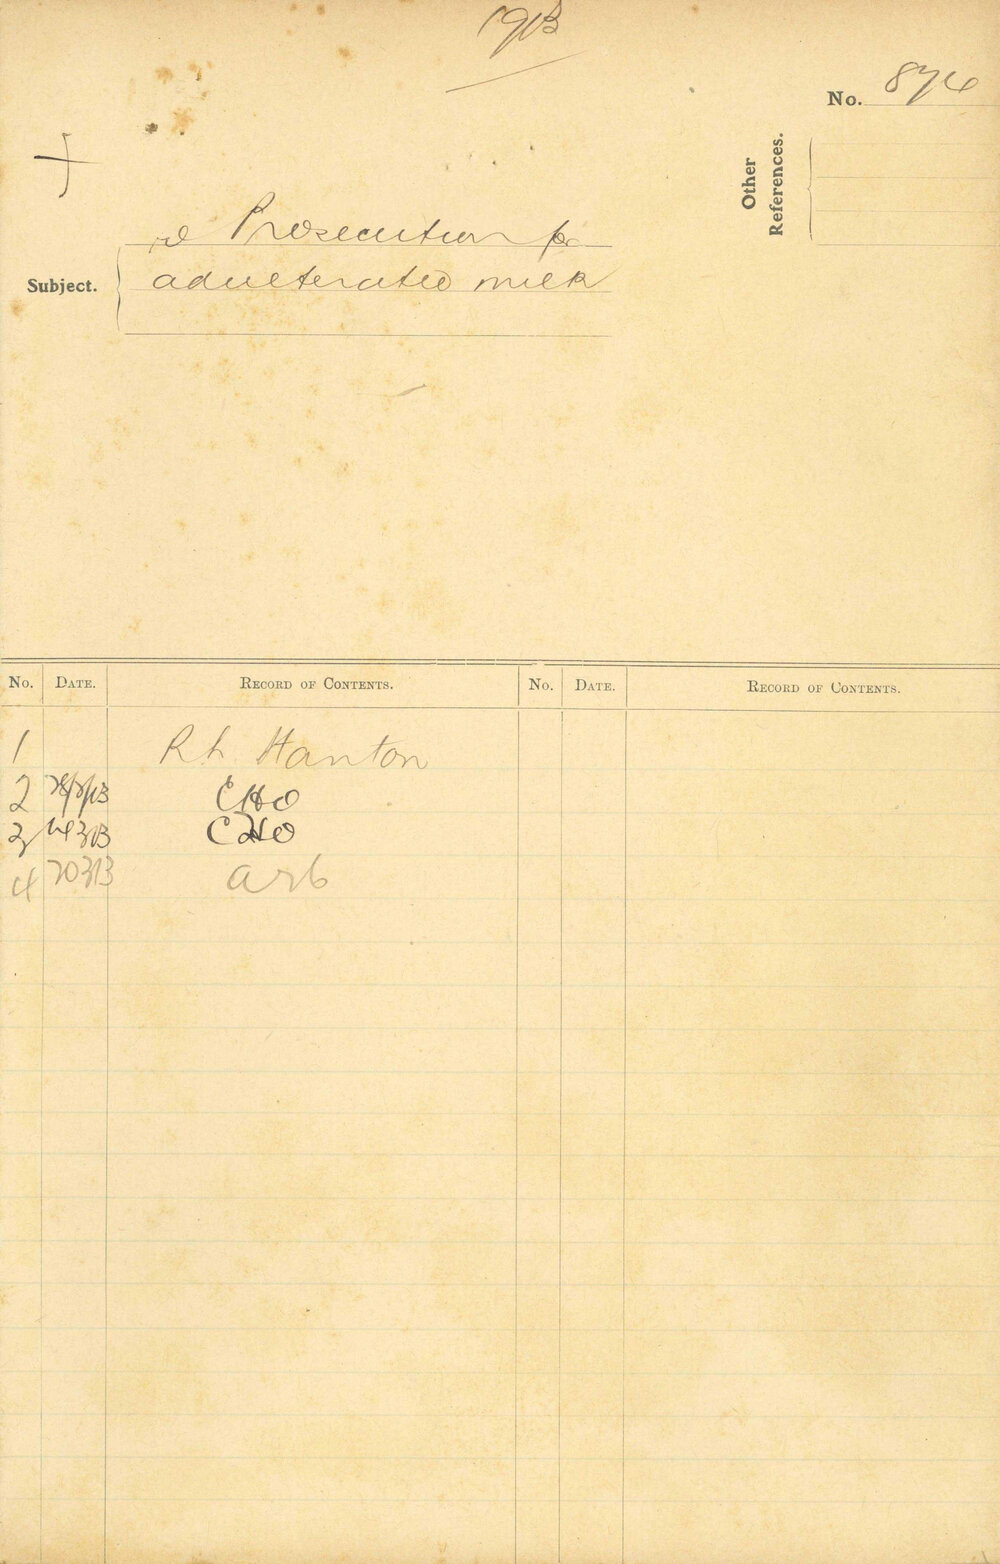 1913
No. 874
Other References.
re Prosecution for
Subject. adulterated milk
No. Date. Record of Contents. No. Date. Record of Contents.
1 R L Hanton
2 28/2/13 CHO
3 14313 CHO
4 20313